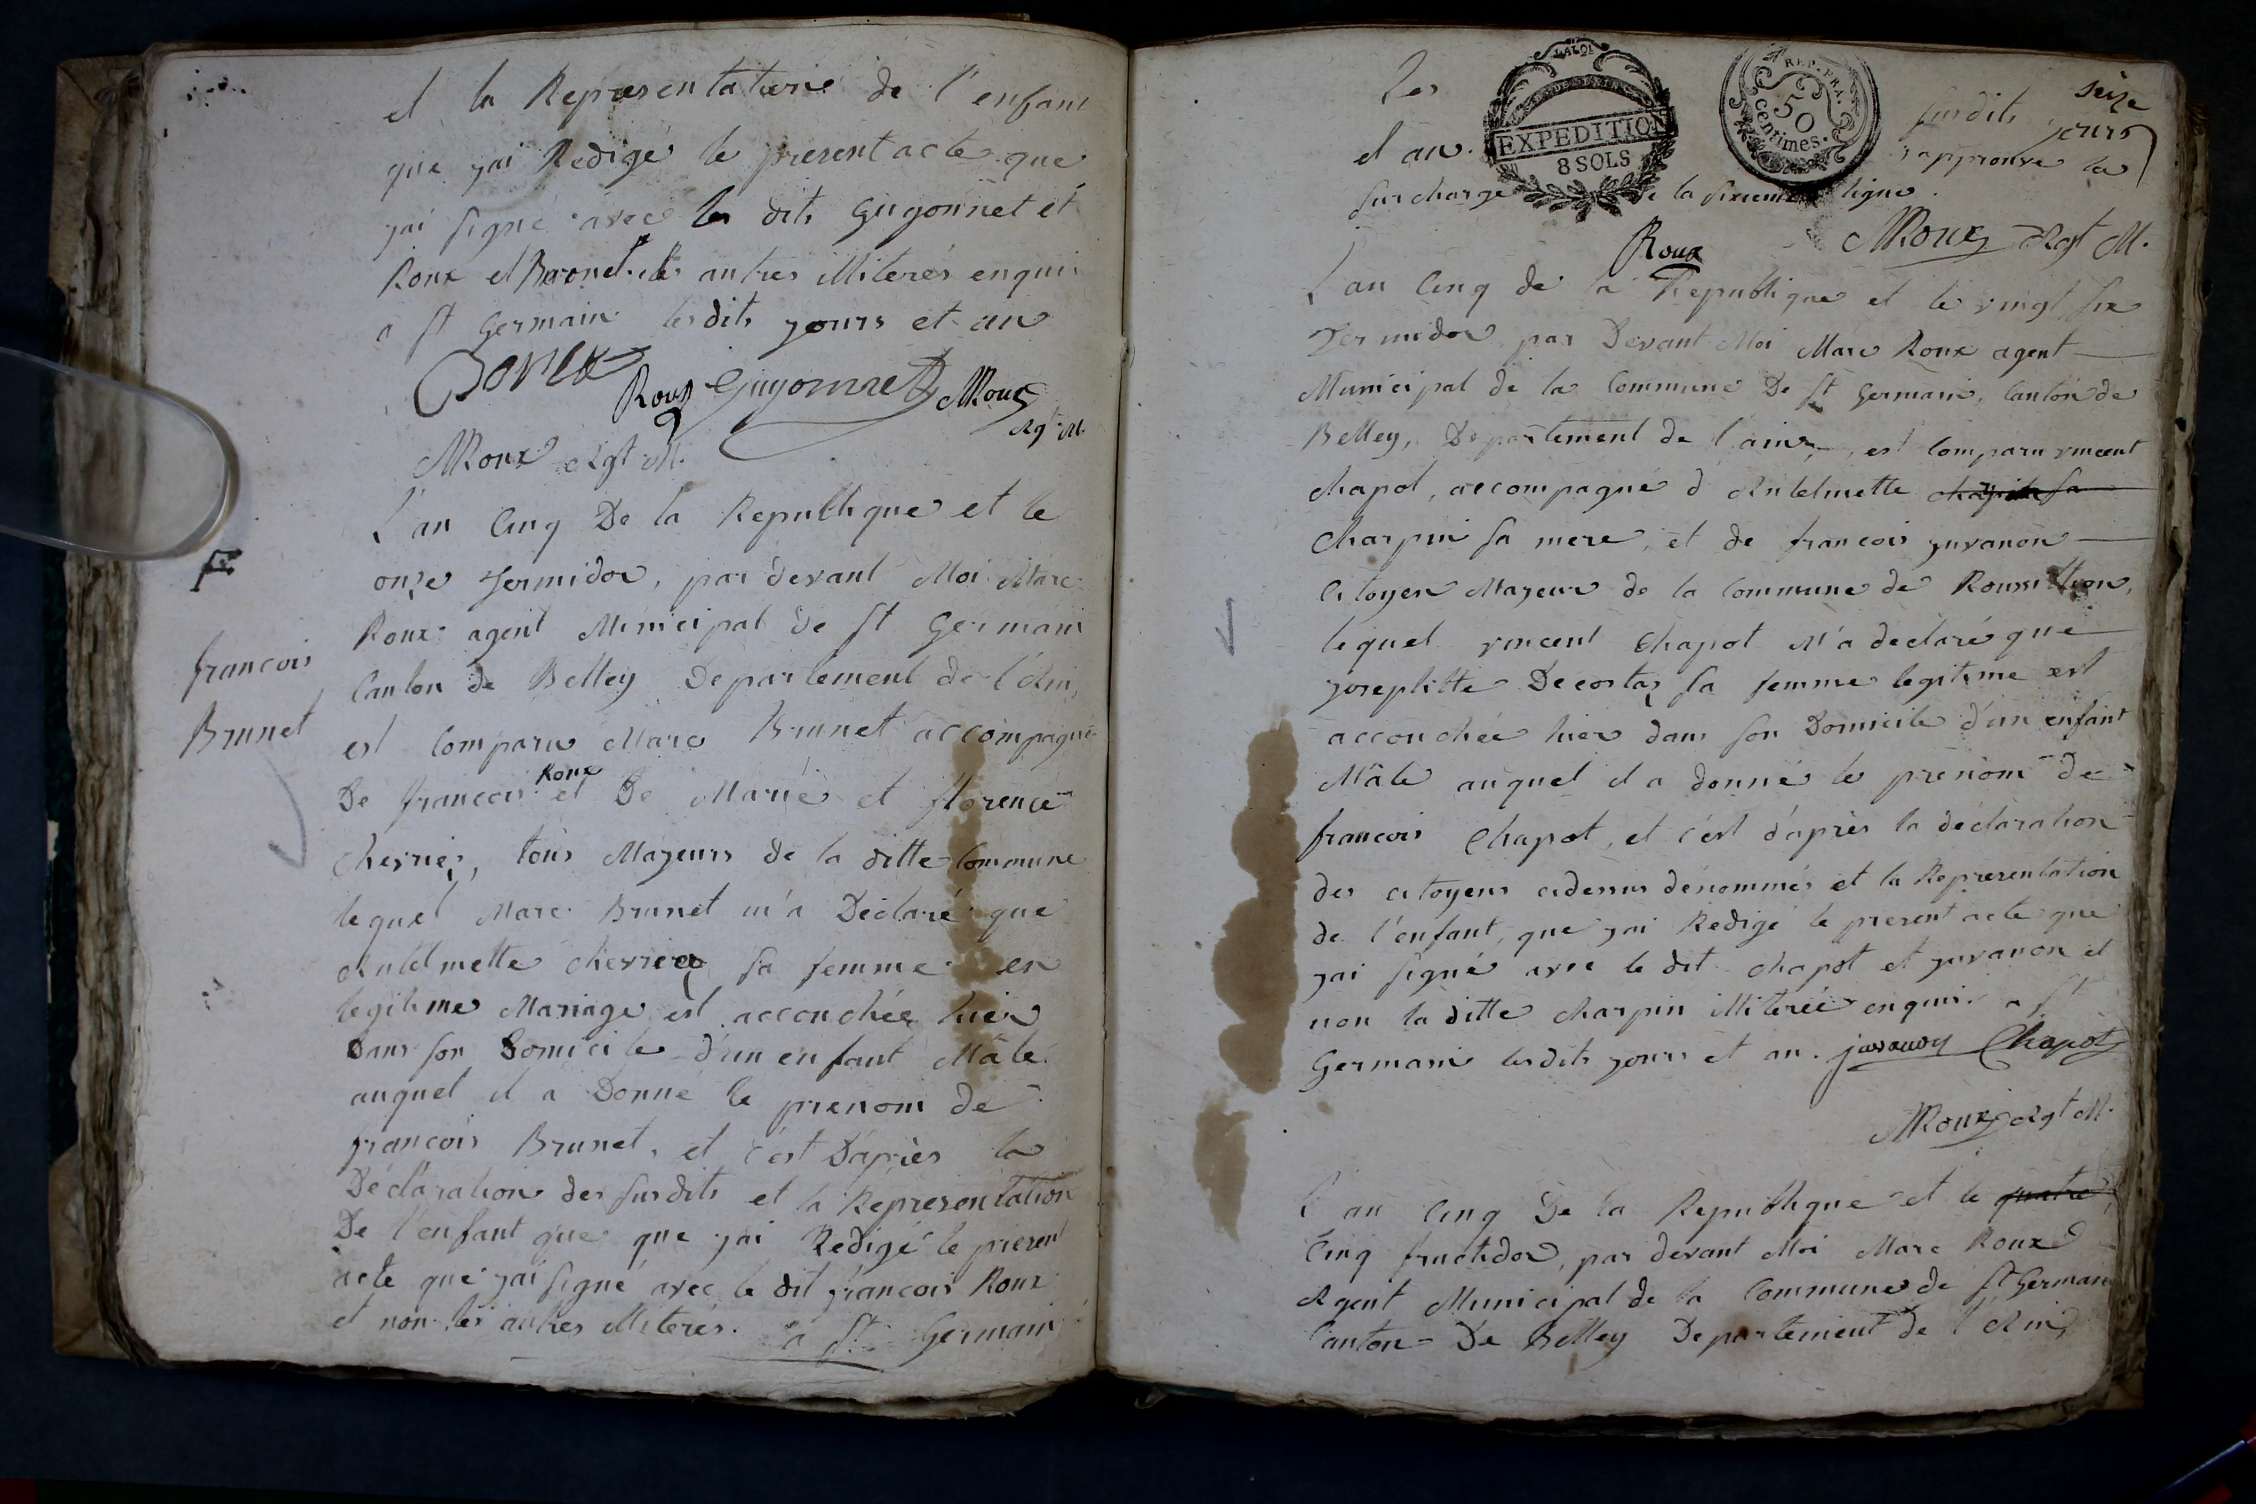 et la Representation de l'enfant
que jai Redigé le present acte que
jai signé avec les dits Guyonnet et
Roux et les autres illiterés enquis
a St Germain lesdits jours et an
Roux Guyonnet MRoux
Agt M.
MRoux Agt M.
L'an Cinq De la Republique et le
onze termidor, par devant Moi Marc
Roux agent Municipal de St Germain
francois
Canton de Belley Departement de l'Ain,
Brunet
est Comparu Marc Brunet accompagné
De francois Roux et De Marie et florence
Chevrier, tous Majeurs de la ditte Commune
lequel Marc Brunet m'a Déclaré que
Antelmette Chevrier sa femme en
legitime Mariage est accouchée hier
Dans son Domicile d'un enfant Mâle
auquel il a Donné le prenom de
francois Brunet, et c'est D'aprés la
Déclaration des susdits et la Representation
De l'enfant que que jai Redigé le present
acte que jai signé avec le dit francois Roux
et non les autres illiterés. a St Germain
seize
Les susdits jours
et an. j'approuve la
surcharge de la sixieme ligne.
LA LOI
EXPEDITION
8 SOLS
REP. FRA.
50
centimes.
Roux MRoux Agt M.
L'an Cinq de la Republique et le vingt six
Termidor par Devant Moi Marc Roux agent
Municipal de la Commune De St Germain, Canton de
Belley, Departement de l'ain, est Comparu vincent
Chapot, accompagné d'Antelmette
Charpin sa mere, et de francois juvanon
Citoyen Majeur de la Commune de Roussillion,
lequel vincent Chapot M'a declaré que
josephtte Decostaz sa femme legitime est
accouchée hier dans son Domicile d'un enfant
Mâle auquel il a donné le prenom de
francois Chapot, et c'est d'après la déclaration
des citoyens cidessus dénommés et la Representation
de l'enfant, que jai Redigé le present acte que
jai signé avec le dit Chapot et juvanon et
non la ditte Charpin illiterée enquise a St
Germain lesdits jours et an. juvanon Chapot
MRoux Agt M.
L'an Cinq De la Republique et le quatre
Cinq fructidor, par devant Moi Marc Roux
Agent Municipal de la Commune de St Germain
Canton De Belley Departement de l'Ain,